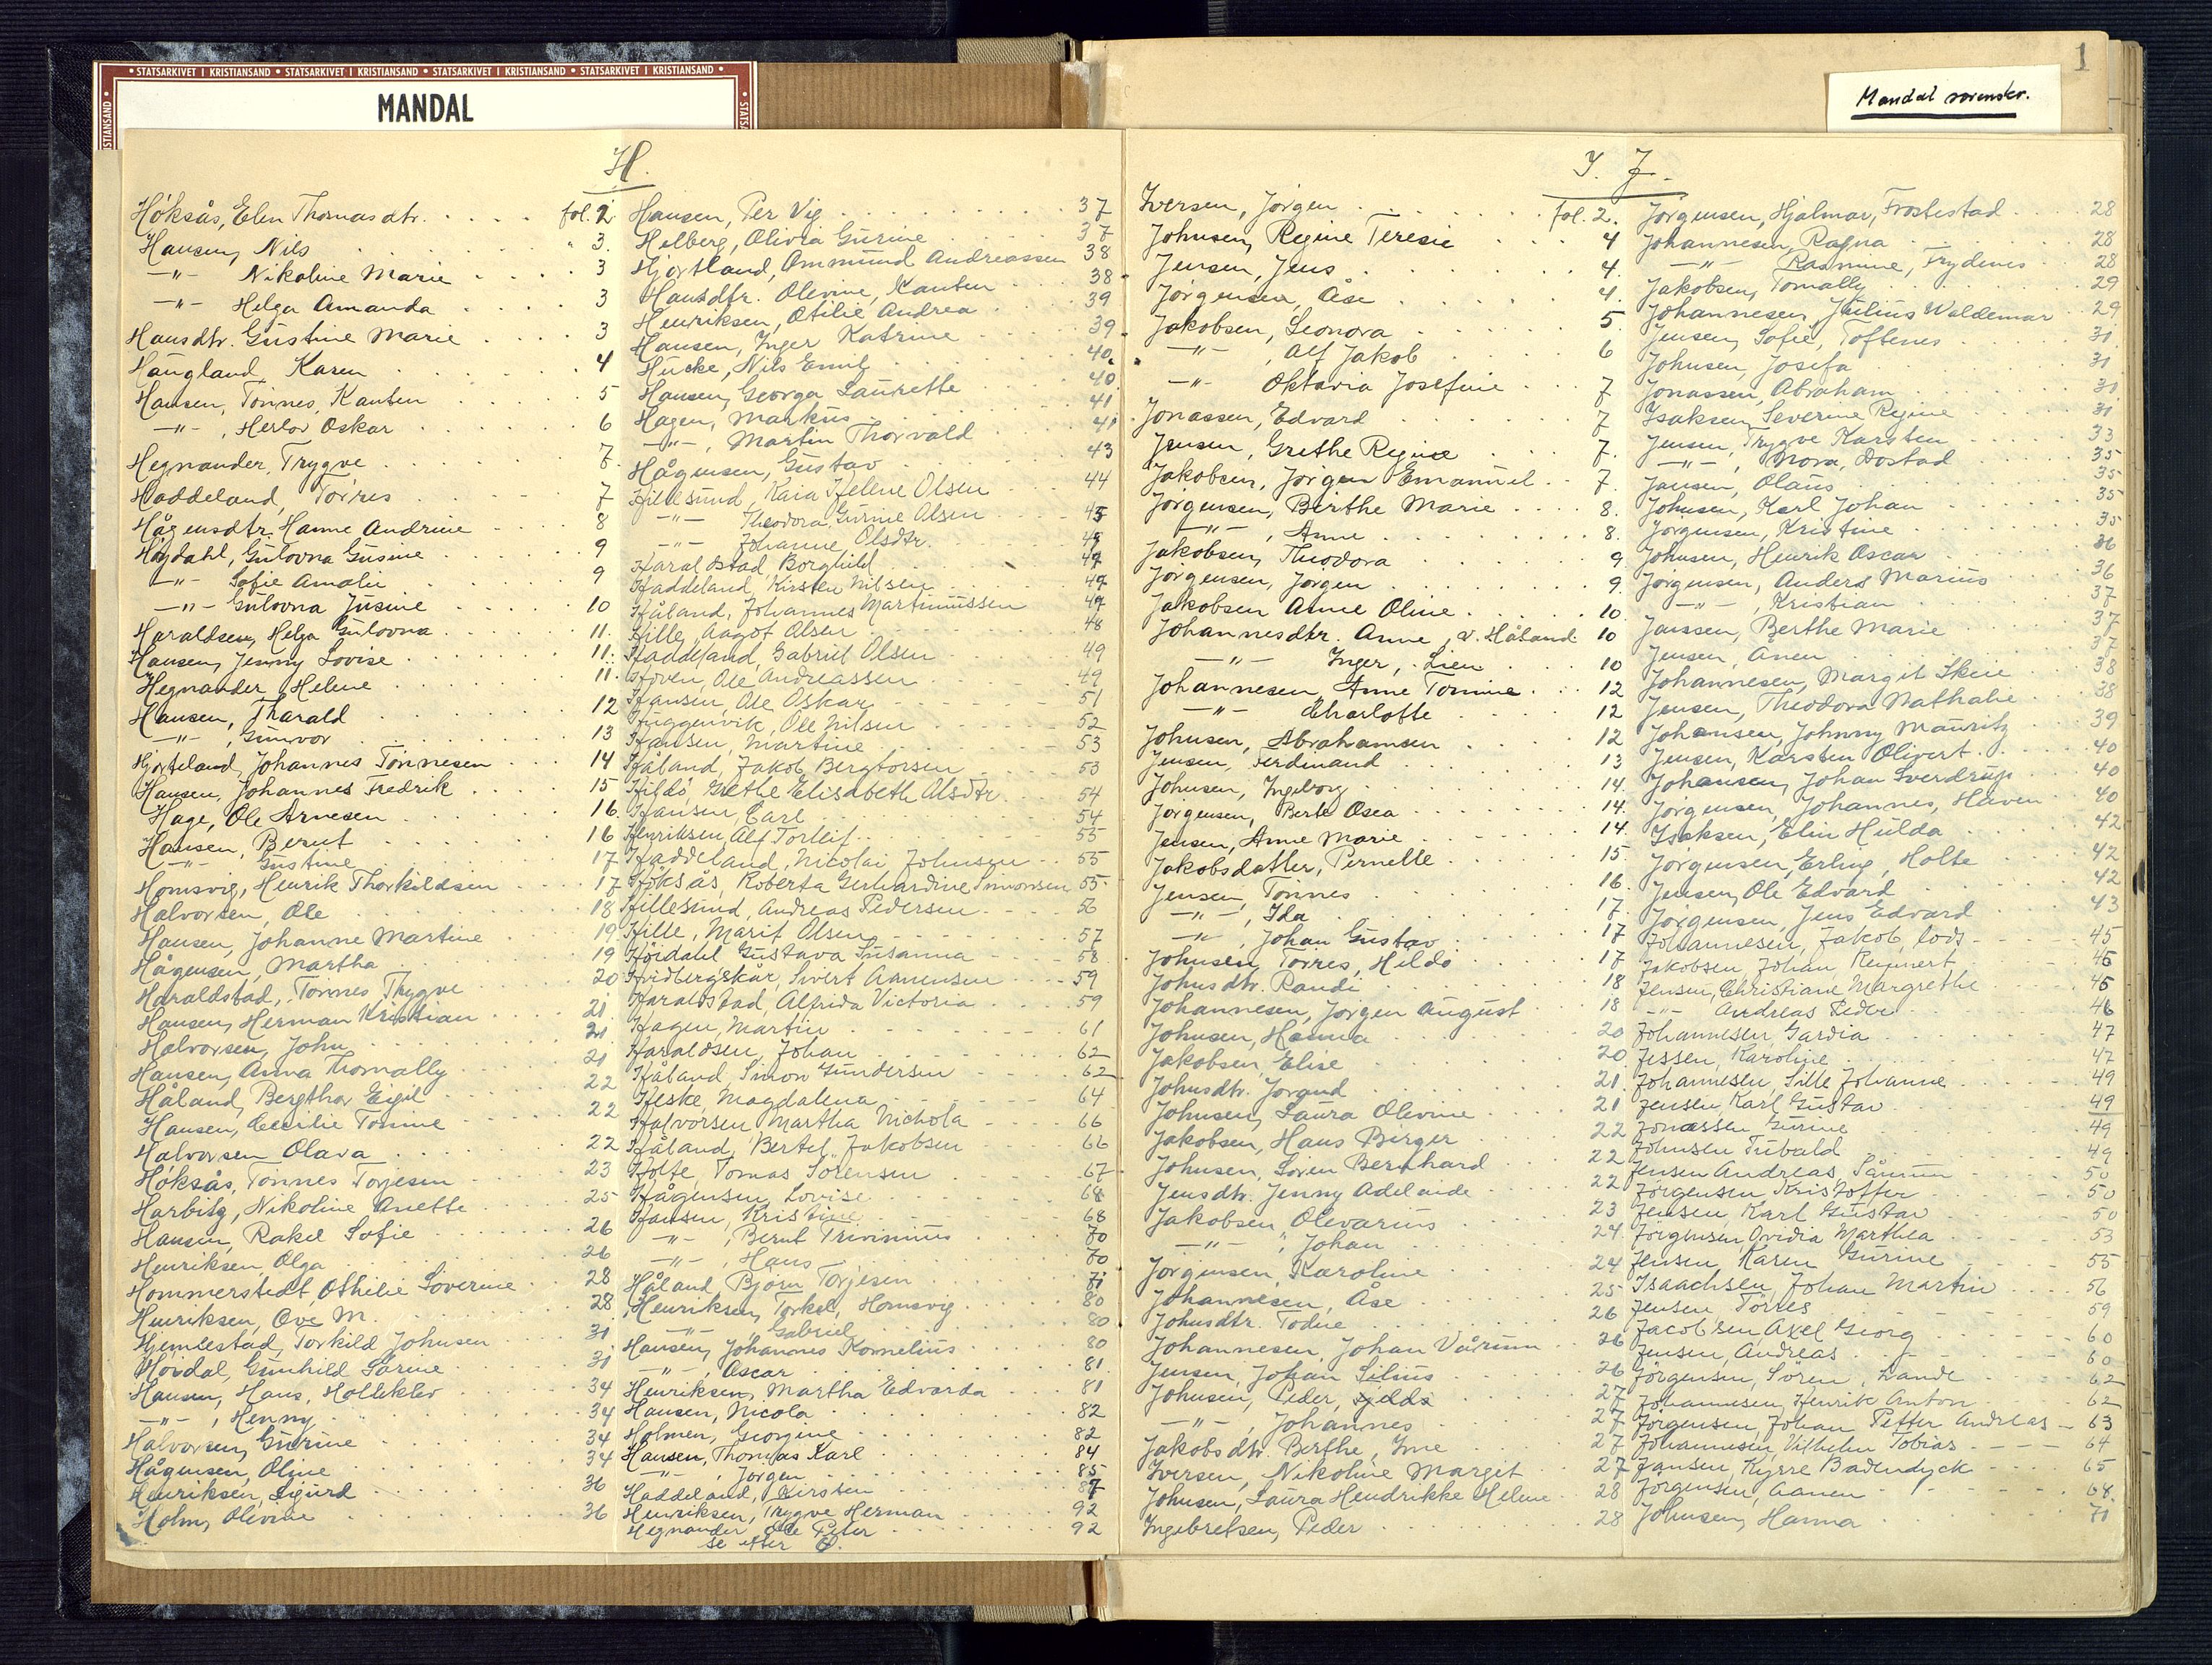 • STATSARKIVET I KRISTIANSAND • STATSARKIVET I KRISTIANSAND • STATSARKIVET I KRISTIANSAND • STATSARKIVET I KRISTIANSAND •
MANDAL
1
Mandal sorenskr.
H.
Høksås, Elen Thomasdtr. fol. 2
Hansen, Nils " 3.
-"- Nikoline Marie 3
-"- Helga Amanda 3
Hansdtr. Gustine Marie 3
Haugland, Karen 4
Hansen, Tønnes, Kanten 5
-"-, Herlov Oskar 6
Hegnander, Trygve 7.
Haddeland, Torres 7
Hågensdtr. Hanne Andrine 8
Høgdahl, Gulovna Gusine 9
-"- Sofie Amalie 9
-"- Gulovna Jusine 10
Haraldsen, Helga Gulovna 11.
Hansen, Jenny Lovise 11.
Hegnander, Helene 11.
Hansen, Tharald 12
-"-, Gunvor 13
Hjorteland, Johannes Tønnesen 14
Hansen, Johannes Fredrik 15
Hage, Ole Arnesen 16
Hansen, Berut 16
-"- Gustine 17
Homsvig, Henrik Thorkildsen 17
Halvorsen, Ole 18
Hansen, Johanne Martine 19
Hågensen, Martha 19
Haraldstad, Tønnes Trygve 20
Hansen, Herman Kristian 21
Halvorsen, John 21
Hansen, Anna Thomally 21
Håland, Bergthor Eigil 22
Hansen, Cecilie Tomine 22
Halvorsen Olava 22
Høksås, Tønnes Torjesen 23
Harbitz, Nikoline Anette 25
Hansen, Rakel Sofie 26
Henriksen, Olga 26
Hommerstedt, Othilie Soverine 28
Henriksen, Ove M. 28
Hjemlestad, Torkild Johnsen 31
Hordal, Gunhild Sørine 31
Hansen, Hans, Holleklev 34
-"-, Henny 34
Halvorsen, Gurine 34
Hågensen, Oline 34
Henriksen, Sigurd 36
Holm, Olivine 36
Hansen, Per Vig 37
Helberg, Olivia Gurine 37
Hjortland, Ommund Andreassen 38
Hansdtr. Olevine, Kanten 38
Henriksen, Otilie Andrea 39
Hansen, Inger Katrine 39
Hucke, Nils Emil 40
Hansen, Georga Laurette 40
Hagen, Markus 41
-"-, Martin Thorvald 41
Hågensen, Gustav 43
Hillesund, Kaia Helene Olsen 44
-"- Theodora Gurine Olsen 45
-"- Johanne Olsdtr.
Haraldstad, Borghild 47
Haddeland, Kirsten Nilsen 47
Håland, Johannes Martinussen 47
Hille, Aagot Olsen 48
Haddeland, Gabriel Olsen 49
Hoven, Ole Andreassen 49
Hansen, Ole Oskar 51
Huggenvik, Ole Nilsen 52
Hansen, Martine 53
Håland, Jakob Bergtorsen 53
Hildø, Grethe Elisabeth Olsdtr 54
Hansen, Carl 54
Henriksen, Alf Torleif 55
Haddeland, Nicolai Johnsen 55
Høksås, Roberta Gerhardine Simonsen 55
Hillesund, Andreas Pedersen 56
Hille, Marit Olsen 57
Höidahl Gustava Susanna 58
Hvidbergskår, Sivert Aanensen 59
Haraldstad, Alfrida Victoria 59
Hagen, Martin 61
Haraldsen, Johan 62
Håland, Simon Gundersen 62
Heske, Magdalena 64
Halvorsen Martha Nichola 66
Håland, Bertel Jakobsen 66
Holte, Tomas Sörensen 67
Hågensen, Lovise 68
Hansen, Kristine 68
-"-, Berut Trivinius 70
-"-, Hans 70
Håland, Bjørn Torjesen 71
Henriksen, Torkel, Homsvig 80
-"-, Gabriel 80
Hansen, Johannes Kornelius 80
-"-, Oscar 81
Henriksen, Martha Edvarda 81
Hansen, Nicola 82
Holmen, Georgine 82
Hansen, Thomas Karl 84
-"-, Jørgen 85
Haddeland, Kirsten 87
Henriksen, Trygve Herman 92
Hegnander, Ole Peter 92
se efter Ø.
I. J.
Iversen, Jørgen fol. 2.
Johnsen, Regine Teresie 4
Jensen, Jens 4.
Jørgensen, Åse 4.
Jakobsen, Leonora 5
-"-, Alf Jakob 6
-"- Oktavia Josefine 7
Jonassen, Edvard 7
Jensen, Grethe Regine 7.
Jakobsen, Jørgen Emanuel 7.
Jørgensen, Berthe Marie 8.
-"-, Anne 8.
Jakobsen, Theodora 9
Jørgensen, Jørgen 9.
Jakobsen Anne Oline 10.
Johannesdtr. Anne, v. Håland 10
-"- Inger, Lien 10
Johannesen, Anne Tomine 12
-"- Charlotte 12
Johnsen, Abrahamsen 12
Jensen, Ferdinand 13
Johnsen, Ingeborg 14.
Jørgensen, Berte Osea 14.
Jensen, Anne Marie 14.
Jakobsdatter, Pernelle 15
Jensen, Tønnes 16.
-"-, Ida 17.
-"-, Johan Gustav 17
Johnsen, Torres, Hildø 17
Johnsdtr. Randi 18
Johannesen, Jørgen August 18
Johnsen, Hanna 20
Jakobsen, Elise 20
Johnsdtr. Jorgund 21
Johnsen, Laura Olevine 21
Jakobsen, Hans Birger 22
Johnsen, Søren Bernhard 22
Jensdtr. Jenny Adelaide 22
Jakobsen, Olevarius 23
-"-, Johan 24
Jørgensen, Karoline 24
Johannesen, Åse 25
Johnsdtr. Todne 26
Johannesen, Johan Vårum 26
Jensen, Johan Silius 26
Johnsen, Peder, 27
-"-, Johannes 27
Jakobsdtr. Berthe, Ime 27
Iversen, Nikoline Margit 27
Johnsen, Laura Hendrikke Helene 28
Ingebretsen, Peder 28
Jørgensen, Hjalmar, Frostestad 28
Johannesen, Ragna 28
-"- Rasmine, Frydenes 28
Jakobsen, Tomally 29
Johannesen, Julius Waldemar 29
Jensen, Sofie, Toftenes 31
Johnsen, Josefa 31
Jonassen, Abraham 31
Isaksen, Severine Regine 31
Jensen, Trygve Karsten 33
-"-, Nora, Dostad 35
Jansen, Olaus 35
Johnsen, Karl Johan 35
Jørgensen, Kristine 35
Johnsen, Henrik Oscar 36
Jørgensen, Anders Marius 36
-"-, Kristian 37
Janssen, Berthe Marie 37
Jensen, Anen 37
Johannesen, Margit Skeie 38
Jensen, Theodora Nathalie 38
Johansen, Johnny Mauritz 39
Jensen, Karsten Olivert 40
Johansen, Johan Sverdrup 40
Jørgensen, Johannes, Haven 40
Isaksen, Elin Hulda 42
Jørgensen, Erling, Holte 42
Jensen, Ole Edvard 42
Jørgensen, Jens Edvard 43
Johannesen, Jakob, 45
Jakobsen, Johan Reinert 45
Jensen, Christiane Margrethe 45
-"- Andreas Peder 46
Johannesen, Gardia 47
Jessen, Karoline 47
Johannesen, Sille Johanne 49
Jensen, Karl Gustav 49
Jonassen Gurine 49
Johnsen Tubald 49
Jensen Andreas, Sånum 50
Jörgensen, Kristoffer 50
Jensen, Karl Gustav 50
Jörgensen Ovidia Marthea 53
Jensen, Karen Gurine 55
Isaachsen, Johan Martin 56
Jensen, Törres 59
Jacobsen, Axel Georg 60
Jensen, Andreas 60
Jörgensen, Sören, Lande 62
Johannesen, Henrik Anton 62
Jörgensen, Johan Petter Andreas 63
Johannesen, Vilhelm Tobias 64
Jansen, Kyrre Badendyck 65
Jörgensen, Aanen 68
Johnsen, Hanna 71